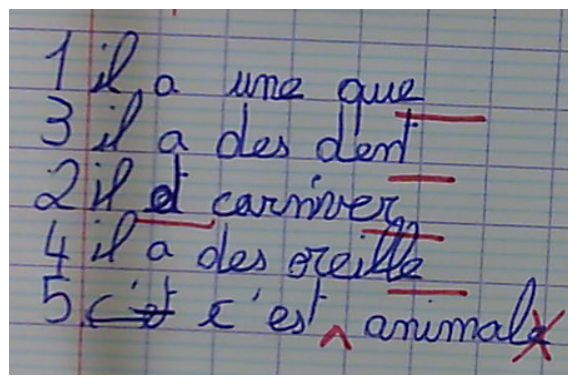 1 il a une que
3 il a des dent
2 il et carniver
4 il a des oreille
5 c'et c'est ^ animale